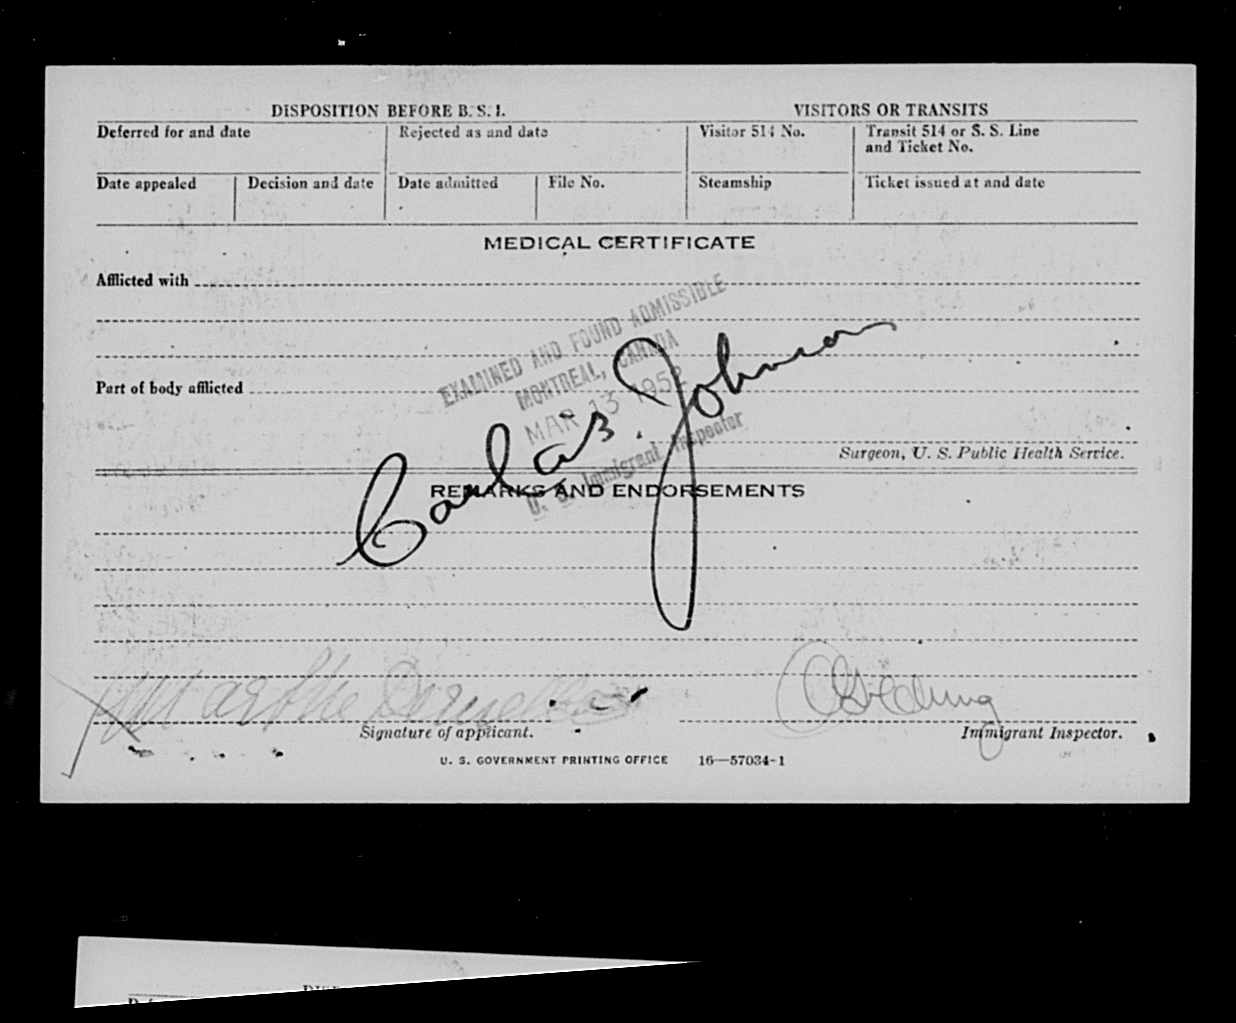 DISPOSITION BEFORE B. S. I. VISITORS OR TRANSITS
Deferred for and date Rejected as and date Visitor 514 No. Transit 514 or S. S. Line and Ticket No.
Date appealed Decision and date Date admitted File No. Steamship Ticket issued at and date
MEDICAL CERTIFICATE
Afflicted with
EXAMINED AND FOUND ADMISSIBLE
MONTREAL, CANADA
MAR 13 1952
U. S. Immigrant Inspector
Part of body afflicted
Johnson
Surgeon, U. S. Public Health Service.
REMARKS AND ENDORSEMENTS
Marthe
Signature of applicant. Immigrant Inspector.
U. S. GOVERNMENT PRINTING OFFICE 16—57034-1